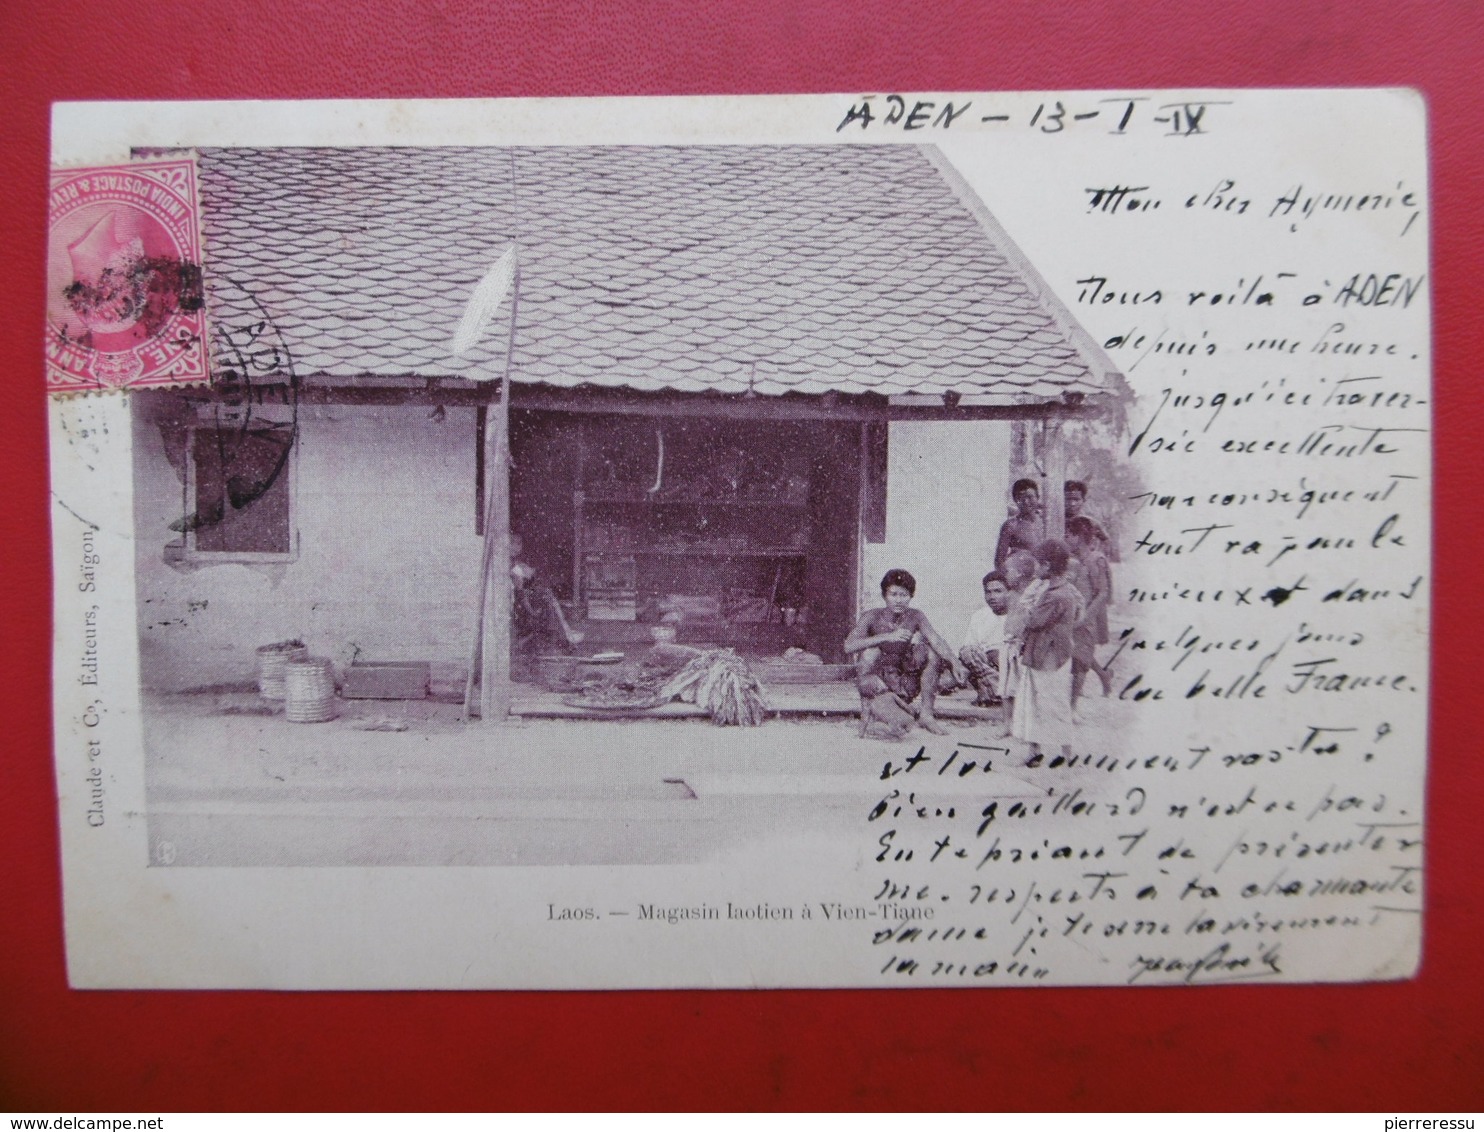 ADEN - 13 - I - IV
Mon cher Aymeric,
Nous voilà à ADEN
depuis une heure.
jusqu'ici traver-
sée excellente
par conséquent
tout va pour le
mieux et dans
quelques jours
la belle France.
et toi comment vas-tu ?
bien gaillard n'est ce pas.
En te priant de présenter
me. respects à ta charmante
dame je te serre la
la main
INDIA POSTAGE & REV
ONE ANN
ADEN
Claude et Co, Éditeurs, Saïgon,
Laos. — Magasin laotien à Vien-Tiane
pierreressu